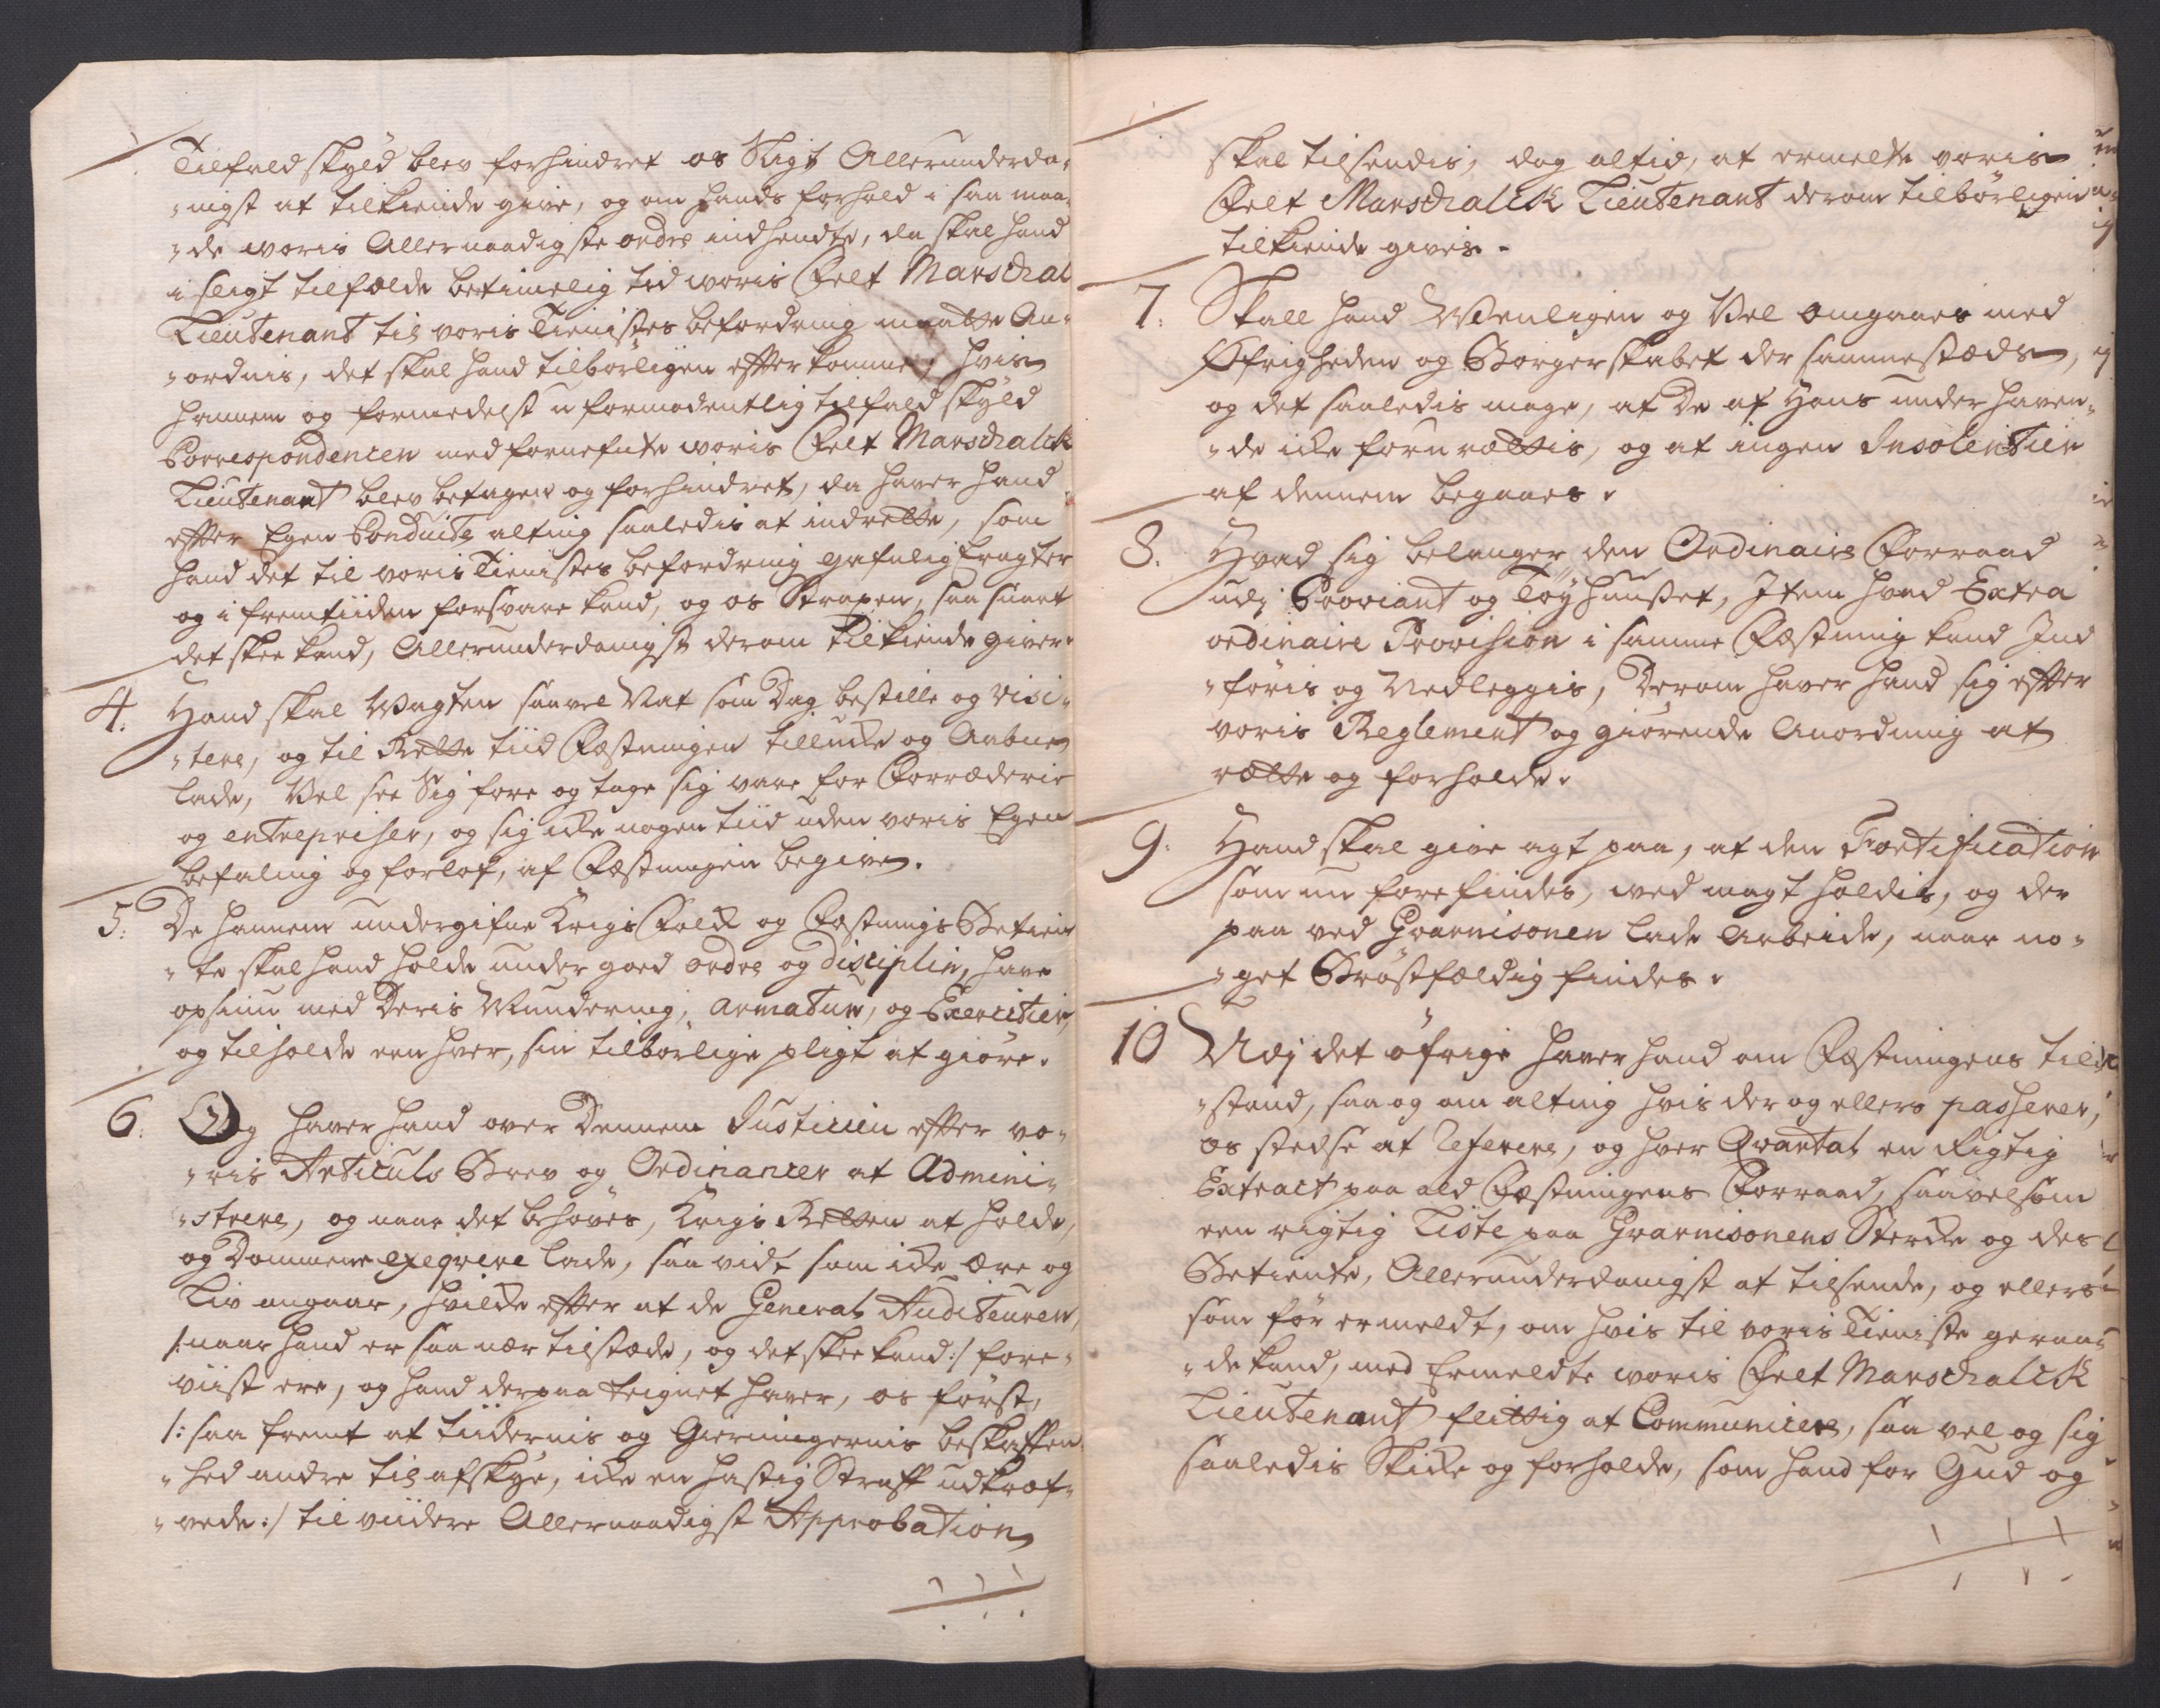 Tilfald skyld blev forhindret os Sligt Allerunderda-
-nigst at tilkiende give, og om hands forhold i saa maa-
-de woris Allernaadigste ordre indhendte, da skal hand
i sligt tilfælde betimelig ted woris Felt Marschal
Lieutenant til voris Tienistes befordring maatte An-
-ordnis, det skal hand tilbörligen effterkomme, hvis
hannem og formedelst u formodentlig tilfald skyld
Correspondencen med fornefnte woris Felt Marschalck
Lieutenant blev betagen og forhindret, da haver hand
effter Egen Conduite alting saaledis at indrette, som
hand det til voris Tienistes befordring gafnlig Eragter
og i fremtiiden forsvare kand, og os Straxen, saa snart
det skee kand, Allerunderdanigst derom tilkiende giver.
4. Hand skal Wagten saavel Nat som Dag bestille og visi-
-tere, og til Rette tiid Fæstningen tillucke og Aabne
lade, Vel see Sig fore og tage sig vare for Forræderie
og entrepriser, og sig icke nogen tiid uden voris Egen
befaling og forlof, af Fæstningen begive.
5. De hannem undergifne Krigs Folck og Fæstnings Betien-
-te skal hand holde under goed ordre og disciplin, have
opsiun med Deris Mundering, armatur, og Exercitier,
og tilholde een hver, sin tilbörlige pligt at giöre.
6. Og haver hand over Dennem Justicien effter vo-
-ris Articuls Brev og Ordinancer at Admini-
-strere, og naar det behöves, Krigs Retten at holde,
og Dommene exeqvere lade, saa vidt som icke ære og
Liv angaar, hvilcke effter at de General Auditeuren,
/:naar hand er saa nær tilstæde, og det skee kand:/ fore-
viist ere, og hand derpaa teignet haver, os först,
/: saa fremt at tiidernis og Gierningernis beskaffen-
-hed andre til afskye, icke en hastig Straff udkræf-
-vede:/ til viidere Allernaadigst Approbation
skal tilsendis, dog altid, at ermelte voris
Felt Marschalck Lieutenant derom tilbörligen
tilkiende gives.
7. Skall hand Wenligen og Vel omgaaes med
Öfrigheden og Borgerskabet der sammestæds,
og det saaledis mage, at De af Hans underhaven-
-de icke forurættis, og at ingen Insolentien
af dennem begaaes.
8. Hvad sig belanger den Ordinaire Forraad
udj Proviant og Töyhuuset, Item hvad Extra
ordinaire Provision i samme Fæstning kand Ind
-föris og Nedleggis, Derom haver hand sig effter
voris Reglement og giörende Anordning at
rætte og forholde.
9. Hand skal give agt paa, at den Fortification
som nu forefindes, ved magt holdis, og der
paa ved Guarnisonen lade Arbeide, naar no-
-get Bröstfældig findes.
10 Udj det öfrige haver hand om Fæstningens til
-stand, saa og om alting hvis der og ellers passerer,
os stedse at referere, og hver Qvartal en Rigtig
Extract paa ald Fæstningens Forraad, saavelsom
een rigtig Liste paa Guarnisonens Stercke og des
Betiente, Allerunderdanigst at tilsende, og ellers
som för ermeldt, om hvis til voris Tieniste geraa-
-de kand, med Ermeldte woris Felt Marschalck
Lieutenant flittig at Communicere, saa vel og sig
saaledis Skicke og forholde, som hand for Gud og